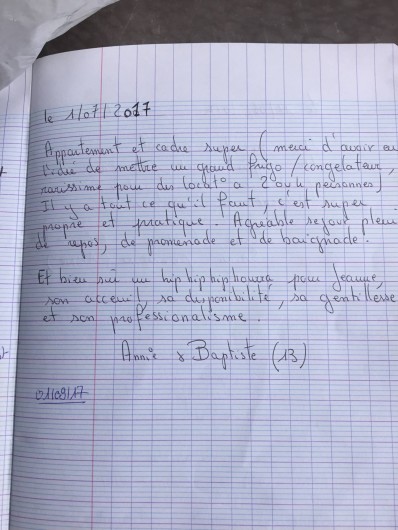 le 1/07/2017
Appartement et cadre super (merci d'avoir eu
l'idée de mettre un grand frigo/congelateur,
rarissime pour des locat° a 2 ou 4 personnes)
Il y a tout ce qu'il faut, c'est super
propre et pratique. Agréable sejour plein
de repos, de promenade et de baignade.
Et bien sûr un hip hip hip houra pour Jeanne,
son acceuil, sa disponibilité, sa gentillesse
et son professionalisme.
Annie & Baptiste (13)
01/08/17